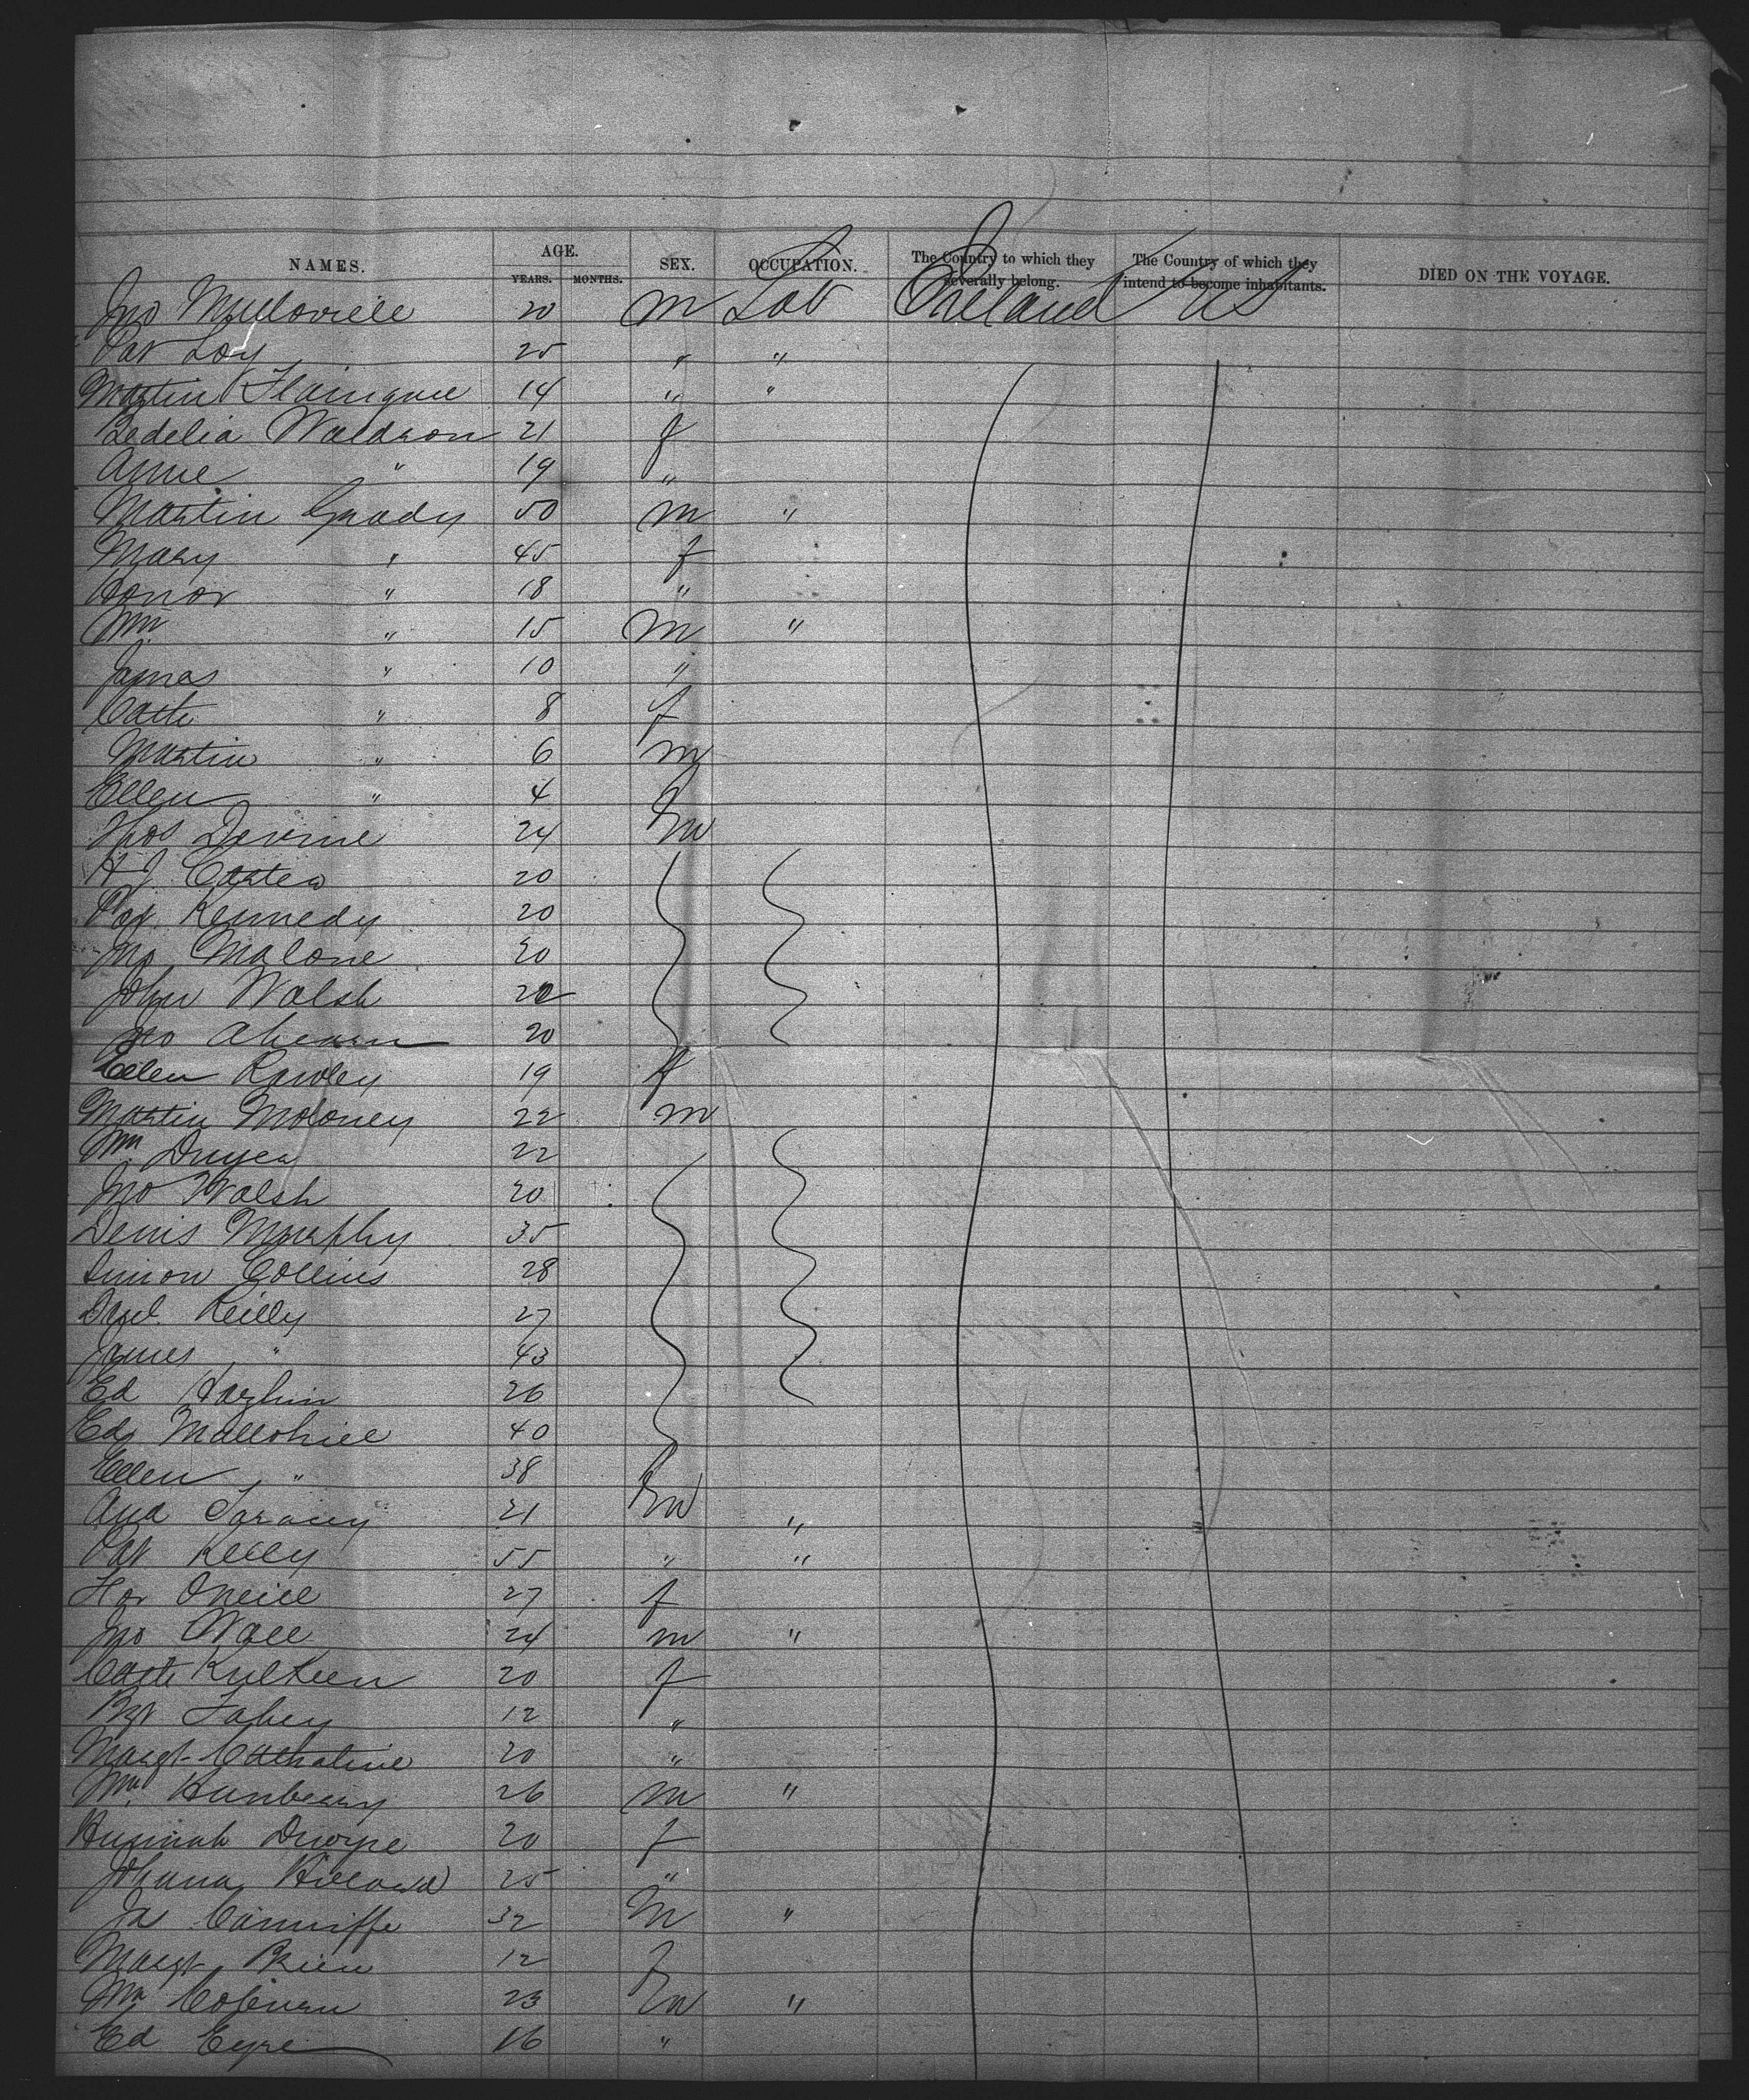 NAMES. AGE. YEARS. MONTHS. SEX. OCCUPATION. The Country to which they severally belong. The Country of which they intend to become inhabitants. DIED ON THE VOYAGE.
Jno 20 m Lab Ireland US
Pat Loy 25 " "
Martin 14 " "
Bedelia Waldron 21 f
Anne " 19 "
Martin Grady 50 m "
Mary " 45 f
Honor " 18 "
Wm " 15 m "
James " 10 "
Cath " 8 f
Martin " 6 m
Ellen " 4 f
Thos Devine 24 m
H J 20
Pat Kennedy 20
Jno Malone 20
John Walsh
Jno Ahearn 20
Ellen Rowley 19 f
Martin Moloney 22 m
Wm 22
Jno Walsh 20
Denis Murphy 35
Simon Collins 28
Danl. Reilly 27
James " 43
Ed 26
Ed 40
Ellen " 38 f
And 21 m "
Pat Kelly 55 " "
Hor Oneill 27 f
Jno Wall 24 m "
Cath 20 f
Bgt Fahey 12 "
Margt 20 "
Wm 26 m "
Hannah 20 f
Johana 25 "
Ja Cunniffe 32 m "
Margt Brien 12 f
Wm 23 m "
Ed Eyre 16 "